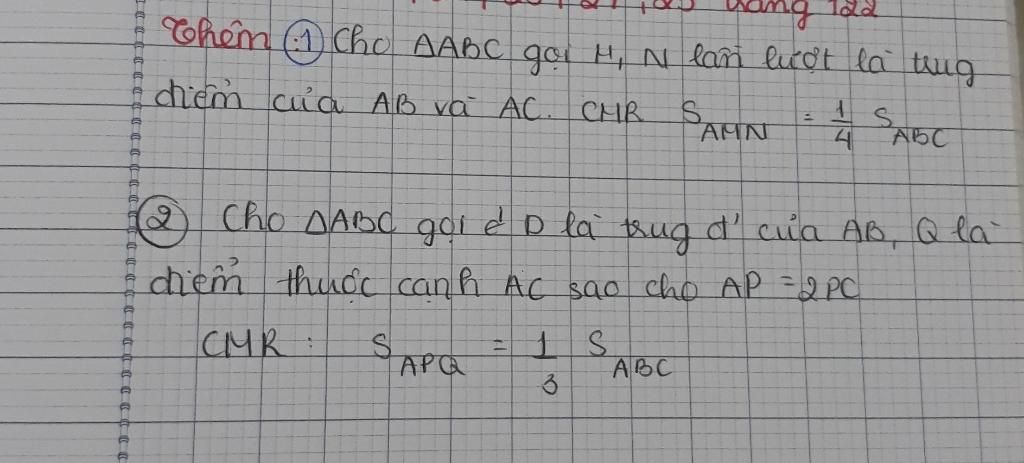 Thêm :1 Cho ΔABC gọi M, N lần lượt là trug
điểm của AB và AC. CMR S_AMN = 1/4 S_ABC
2 Cho ΔABC gọi đ' D là trug đ' của AB, Q là
điểm thuộc cạnh AC sao cho AP = 2PC
CMR : S_APQ = 1/3 S_ABC